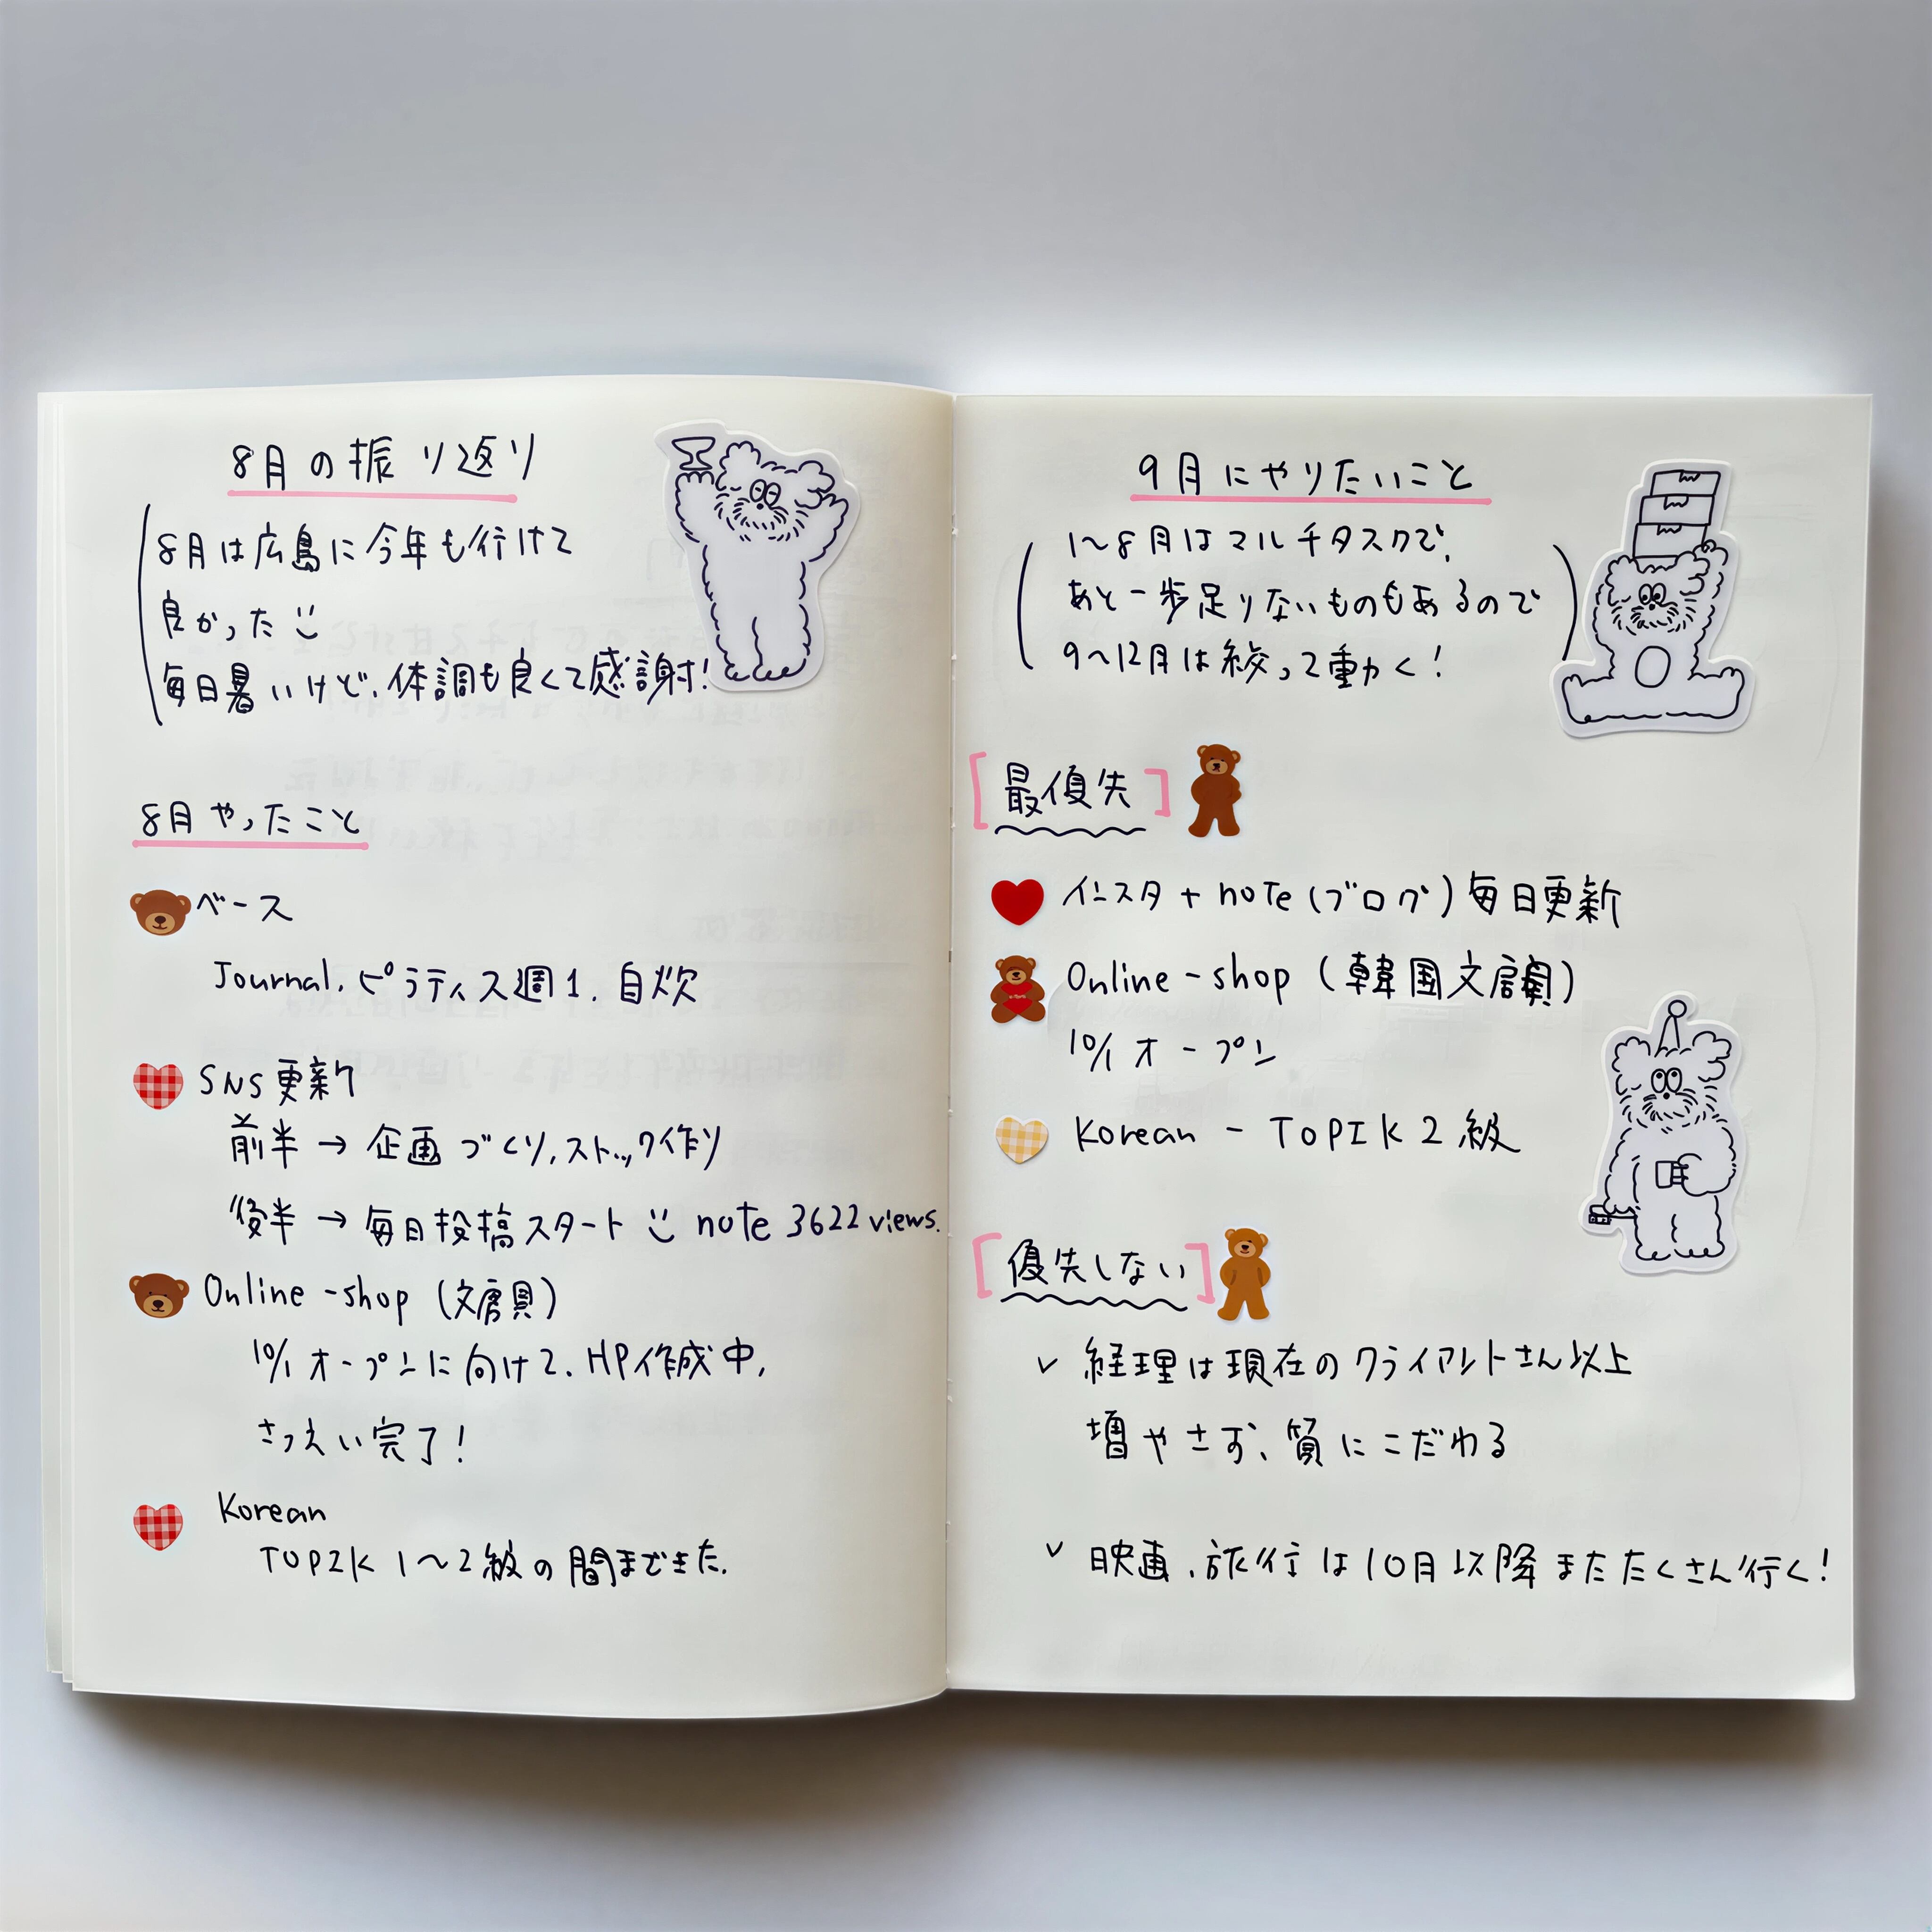 8月の振り返り
8月は広島に今年も行けて
良かった
毎日暑いけど、体調も良くて感謝!
8月やったこと
ベース
Journal. ピラティス週1. 自炊
SNS更新
前半 → 企画づくり、ストック作り
後半 → 毎日投稿スタート note 3622 views.
Online-shop (文房具)
10/1 オープンに向けて、HP作成中、
さつえい完了!
Korean
TOPIK 1〜2級の間まできた.
9月にやりたいこと
1〜8月はマルチタスクで、
あと一歩足りないものもあるので
9〜12月は絞って動く!
[最優先]
インスタ + note (ブログ) 毎日更新
Online-shop (韓国文房具)
10/1 オープン
Korean - TOPIK 2級
[優先しない]
✓ 経理は現在のクライアントさん以上
増やさず、質にこだわる
✓ 映画、旅行は10月以降またたくさん行く!